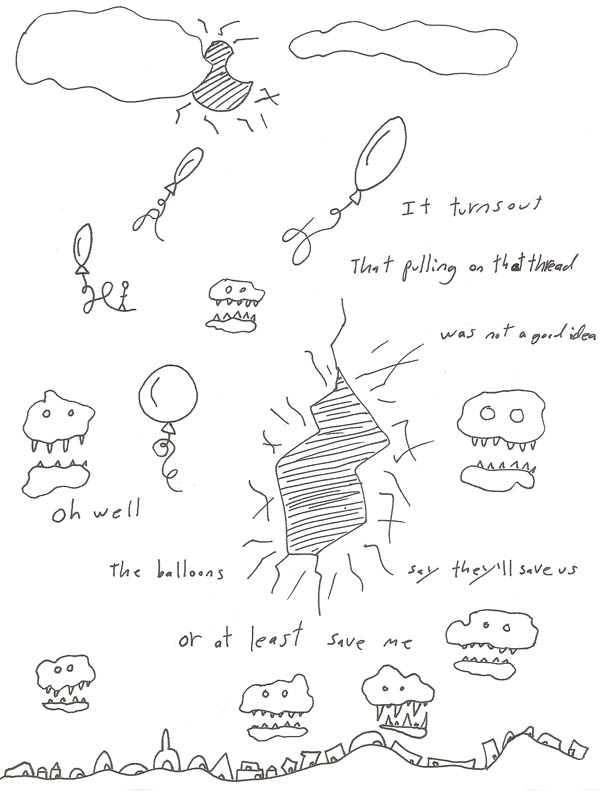 It turns out
That pulling on that thread
was not a good idea
oh well
The balloons say they'll save us
or at least save me